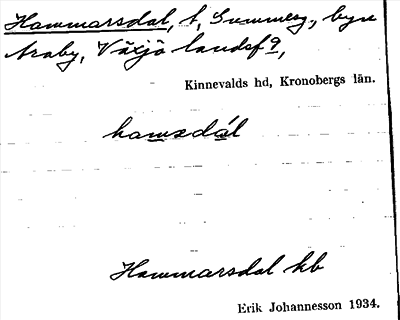 Hammarsdal, t, Gummesg., byn
Araby, Växjö landsf 9,
Kinnevalds hd, Kronobergs län.
hamsdál
Hammarsdal kb
Erik Johannesson 1934.